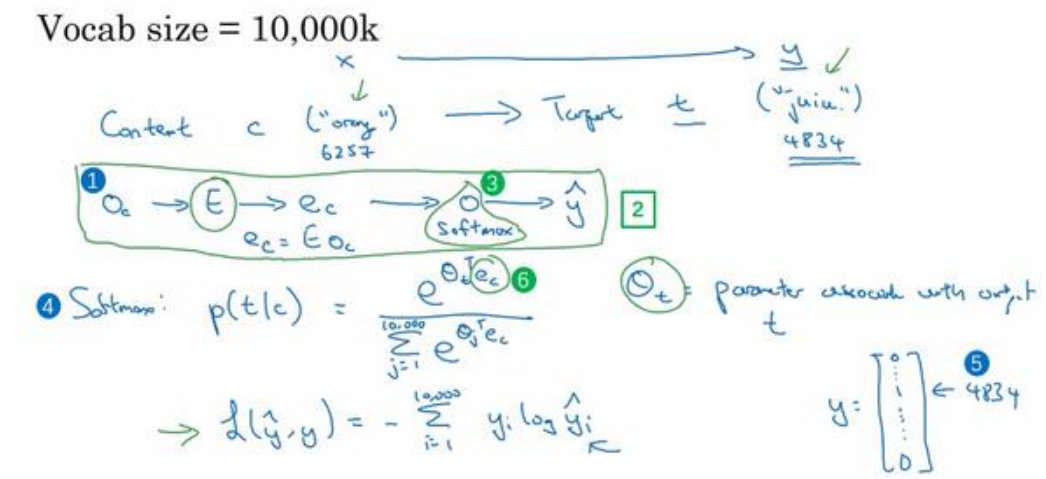 Vocab size = 10,000k
x → y ✓
Content c ("orang") → Target t ("juice")
6257 4834
1 3
O_c → E → e_c → O → ŷ 2
Softmax
e_c = E O_c
4 Softmax: p(t|c) = e^{θ_t^T e_c} / Σ_{j=1}^{10,000} e^{θ_j^T e_c} 6 θ_t = parameter associated with output
t
→ L(ŷ, y) = - Σ_{i=1}^{10,000} y_i log ŷ_i
y = [0 ⋮ 1 ⋮ 0] ← 4834 5